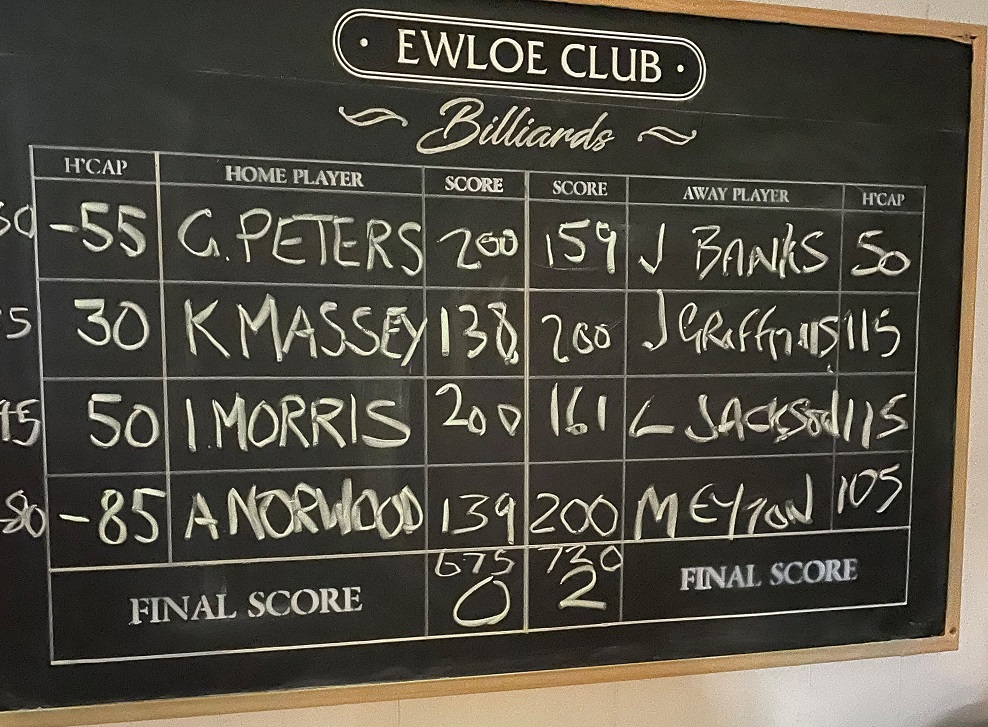 · EWLOE CLUB ·
Billiards
H'CAP HOME PLAYER SCORE SCORE AWAY PLAYER H'CAP
-55 G. PETERS 200 159 J BANKS 50
30 K MASSEY 138 200 J GRIFFITHS 115
50 I. MORRIS 200 161 L JACKSON 115
-85 A NORWOOD 139 200 M EYTON 105
675 730
FINAL SCORE 0 2 FINAL SCORE